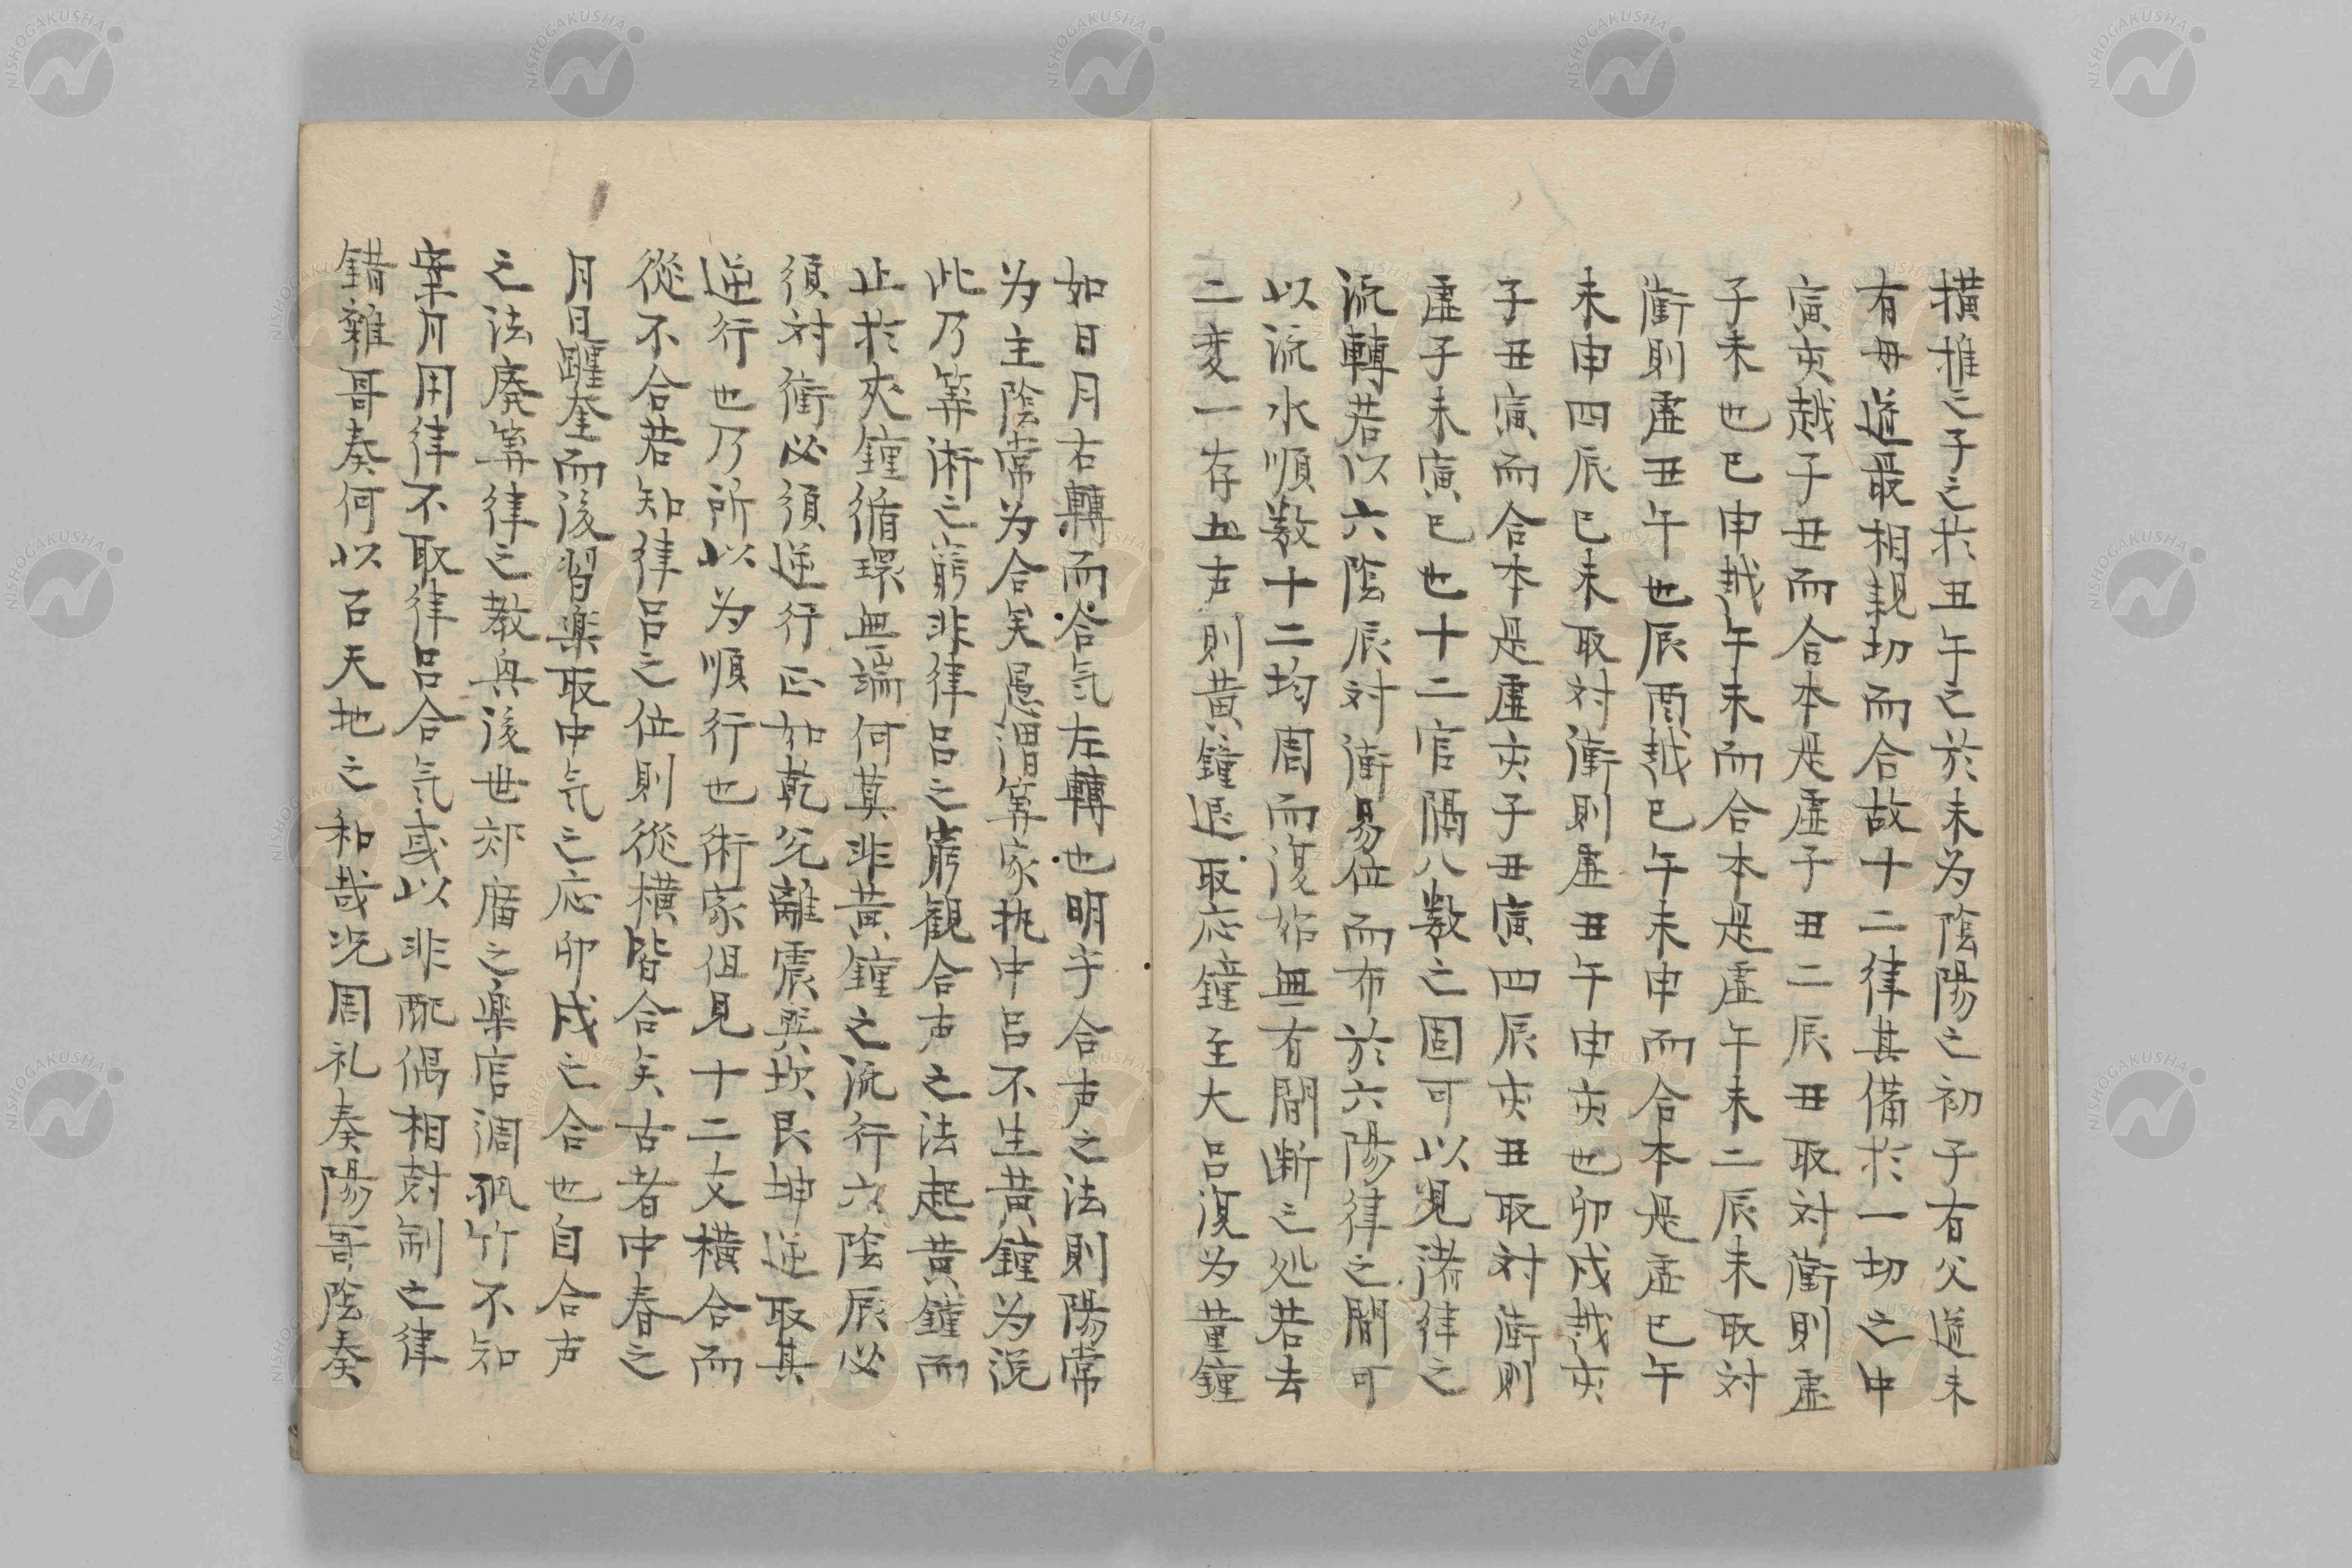 横推之子之於丑午之於未为陰陽之初子有父道未
有母道最相親切而合故十二律其備於一切之中
寅亥越子丑而合本是虚子丑二辰丑取対衝則虚
子未也巳申越午未而合本是虚午未二辰未取対
衝則虚丑午也辰酉越巳午未申而合本是虚巳午
未申四辰巳未取対衝則虚丑午申亥也卯戌越亥
子丑寅而合本是虚亥子丑寅四辰亥丑取対衝則
虚子未寅巳也十二宮隔八数之固可以見諸律之
流轉若以六陰辰対衝易位而布於六陽律之間可
以流水順数十二均周而復始無有間断之処若去
二変一存五声則黄鐘退取応鐘至大呂復为董鐘
如日月右轉而合気左轉也明乎合声之法則陽常
为主陰常为合矣愚謂筭家执中呂不生黄鐘为説
此乃筭術之窮非律呂之窮観合声之法起黄鐘而
止於夾鐘循環無端何莫非黄鐘之流行六陰辰必
須対衝必須逆行正如乾兌離震巽坎艮坤逆取其
逆行也乃所以为順行也術家但見十二支横合而
従不合若知律呂之位則従横皆合矣古者中春之
月日躔奎而後習楽取中気之応卯戌之合也自合声
之法廃筭律之教興後世郊廟之楽官調孤竹不知
案月用律不取律呂合気或以非配偶相対制之律
錯雑哥奏何以召天地之和哉况周礼奏陽哥陰奏
NISHOGAKUSHA